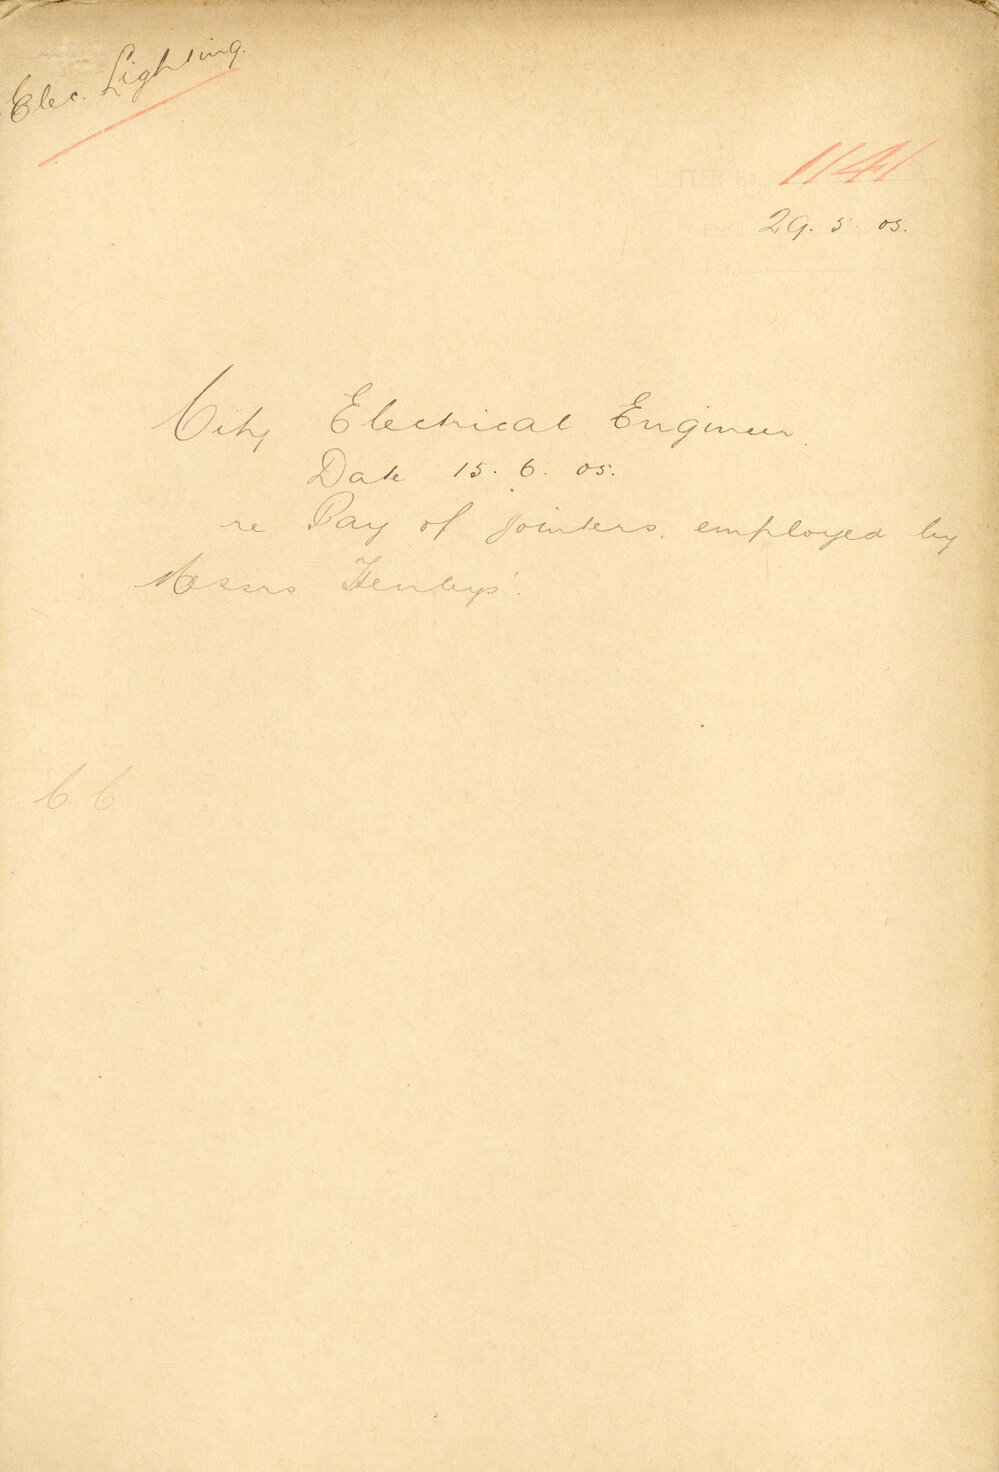 Elec. Lighting.
1141
29. 5. 05.
City Electrical Engineer.
Date 15. 6. 05.
re Pay of jointers employed by
Messrs Henleys'.
C. C